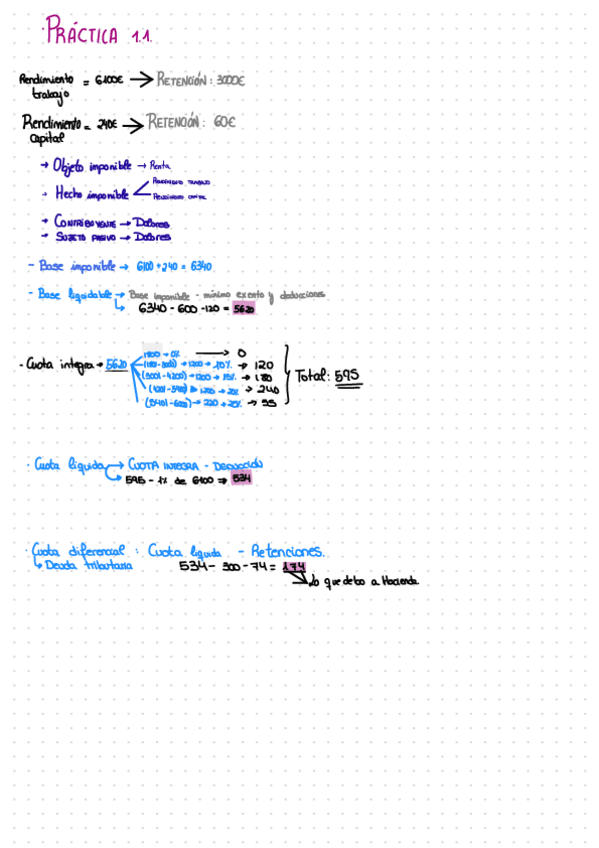 PRÁCTICA 1.1.
Rendimiento trabajo = 6100€ → RETENCIÓN: 3000€
Rendimiento capital = 240€ → RETENCIÓN: 60€
→ Objeto imponible → Renta
→ Hecho imponible
RENDIMIENTO TRABAJO
RENDIMIENTO CAPITAL
→ CONTRIBUYENTE → Dolores
→ SUJETO PASIVO → Dolores
- Base imponible → 6100 + 240 = 6340
- Base liquidable → Base imponible - mínimo exento y deducciones
6340 - 600 - 120 = 5620
· Cuota integra → 5620
1800 → 0% → 0
→ 1200 → 10% → 120
(3001 - 4200) → 1200 → 15% → 180
→ 1200 → 20% → 240
→ 220 → 25% → 55
Total: 595
· Cuota liquida → CUOTA INTEGRA - DEDUCCIÓN
595 - 1% de 6100 ⇒ 534
· Cuota diferencial : Cuota liquida - Retenciones.
↳ Deuda tributaria 534 - 300 - 74 = 174
Lo que debo a Hacienda